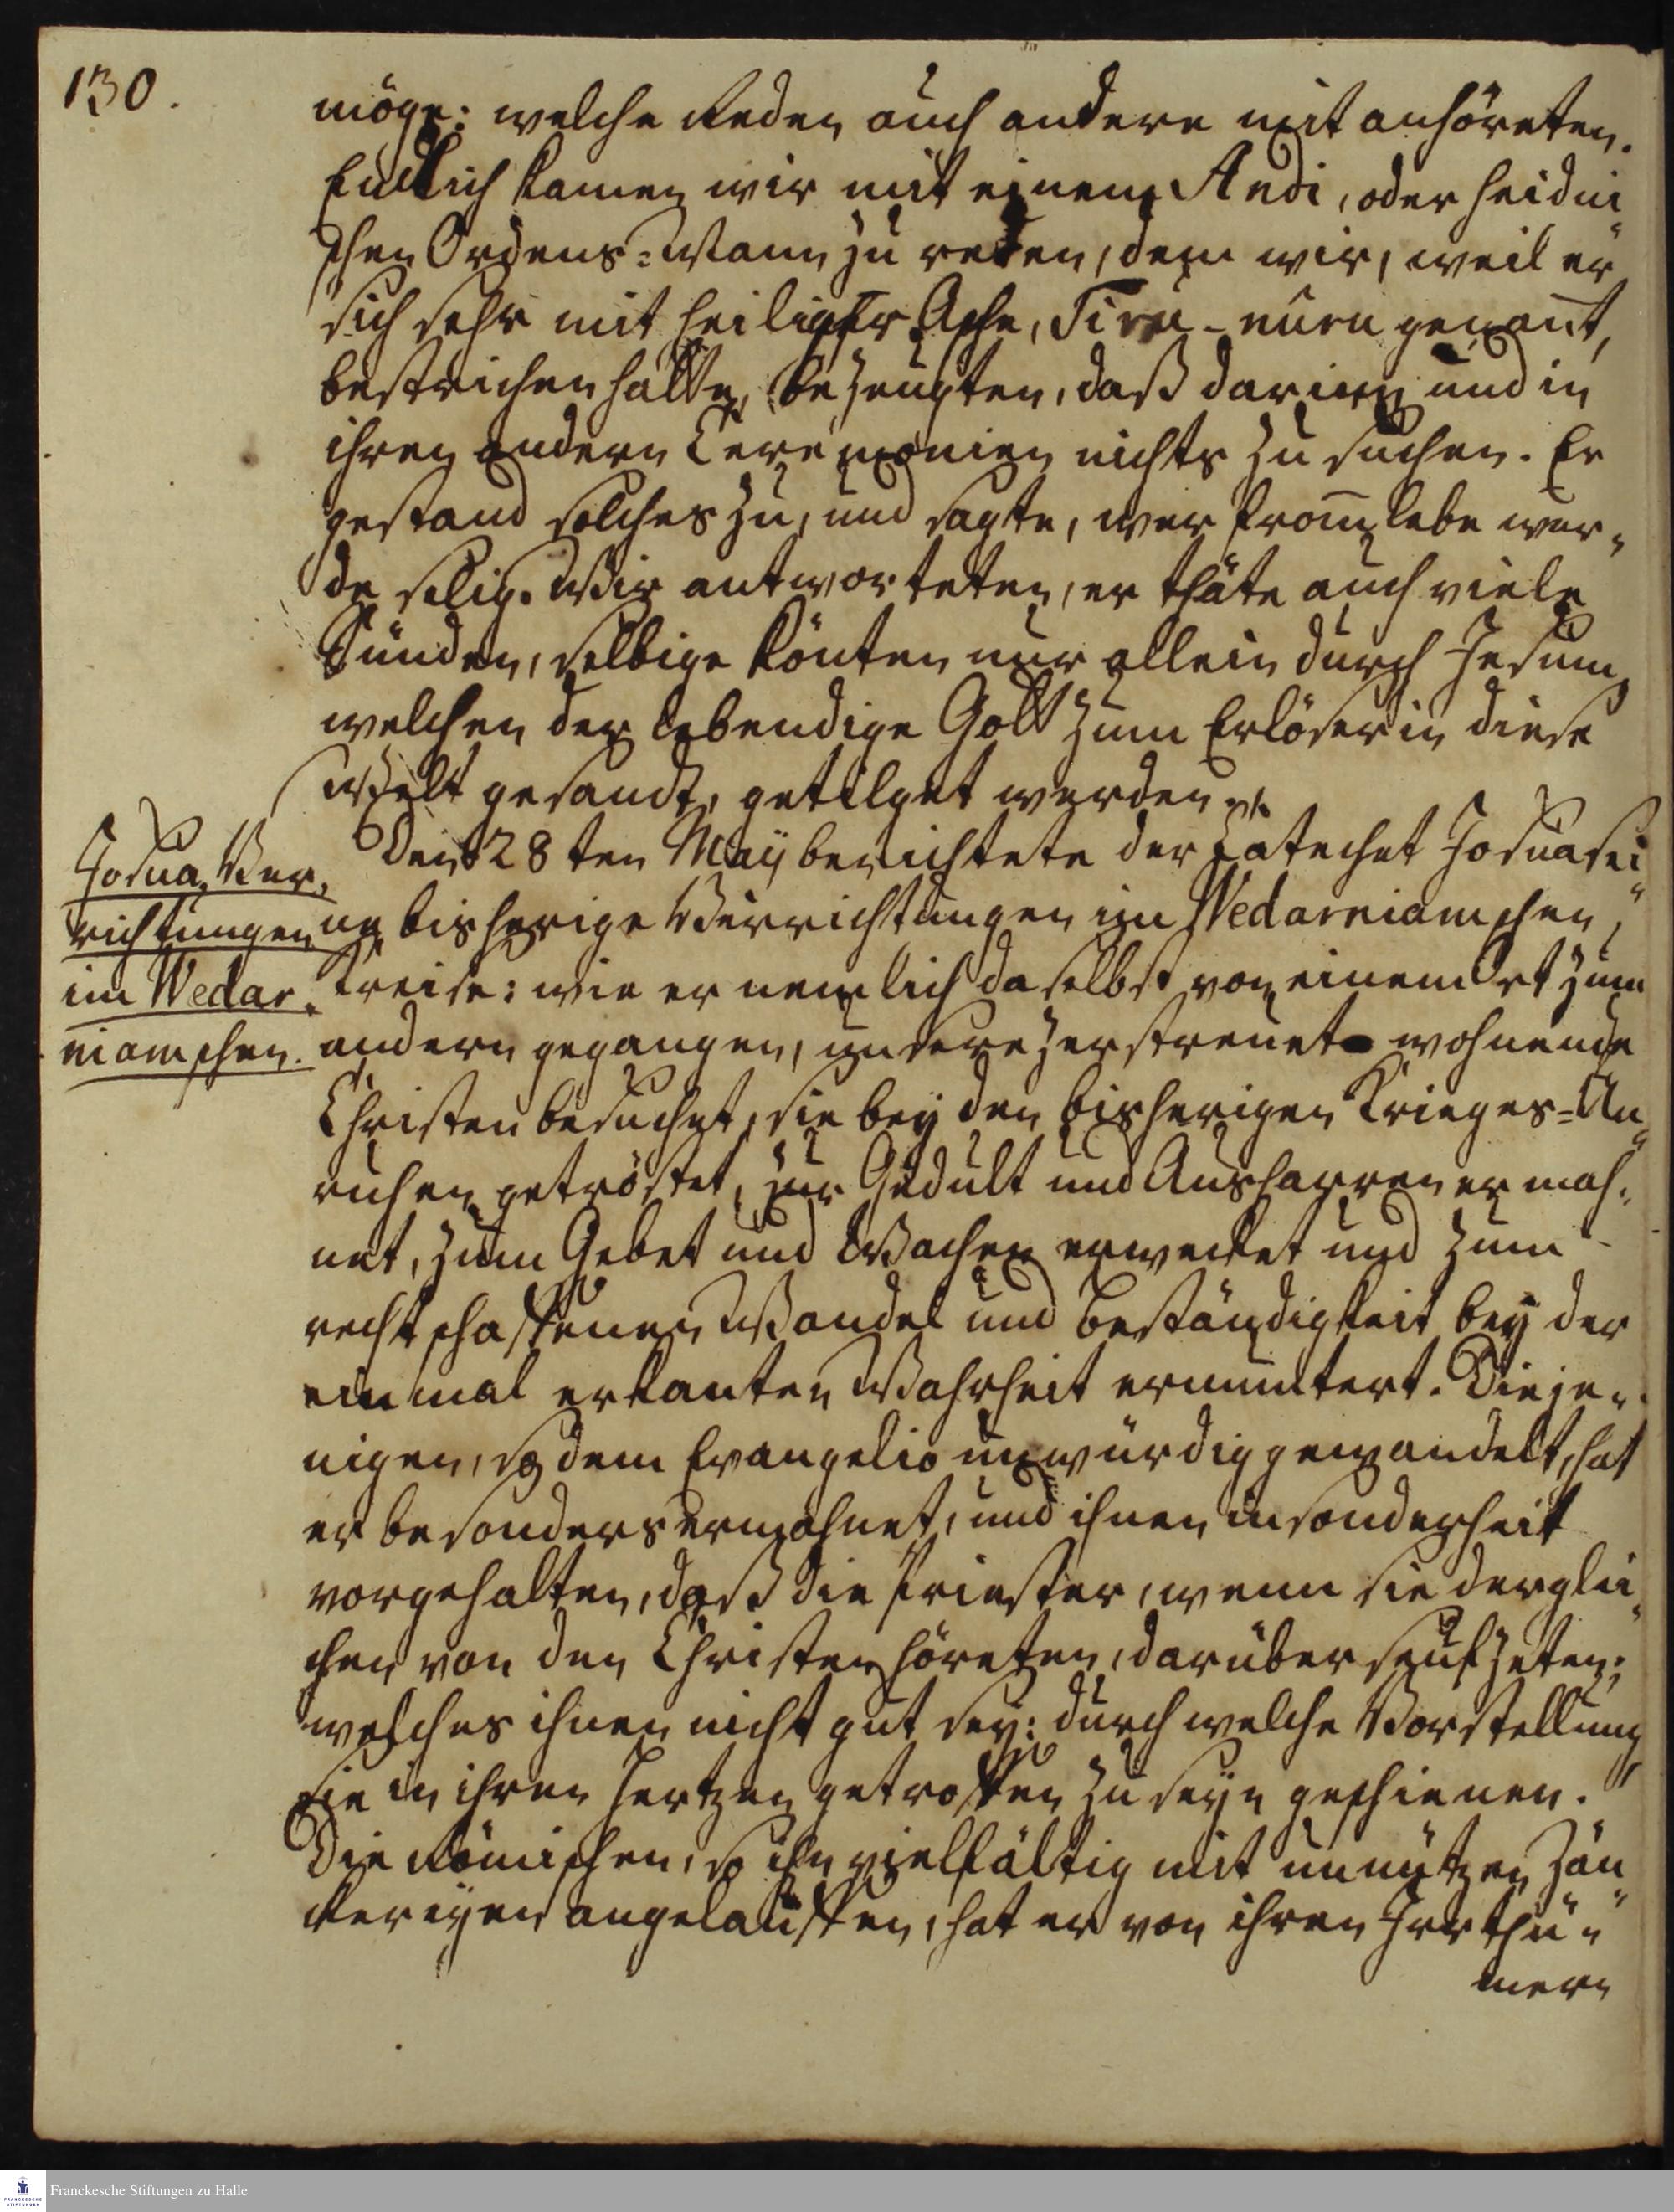 130.
möge: welche Reden auch andere mit anhöreten.
Endlich kamen wir mit einem Andi, oder heidni„
schen Ordens-Mann zu reden, dem wir, weil er
sich sehr mit heiliger Asche, Tiru-nuru genañt,
bestrichen hatte, bezeugten, daß darinn und in
ihren andern Ceremonien nichts zu suchen. Er
gestand solches zu, und sagte, wer from̄ lebe wer„
de selig. Wir antworteten, er thäte auch viele
Sünden, selbige könten nur allein durch Jesum,
welchen der lebendige Gott zum Erlöser in diese
Welt gesandt, getilget werden p.
Den 28ten Maij berichtete der Catechet Josua sei„
Josuä Ver„
richtungen
im Wedar„
niamschen.
ne bisherige Verrichtungen im Wedarniamschen
Creise: wie er nemlich daselbst von einem Ort zum
andern gegangen, unsere zerstreuet wohnende
Christen besuchet, sie bey den bisherigen Krieges-Un„
ruhen getröstet, zur Gedult und Ausharren ermah„
net, zum Gebet und Wachen erwecket und zum
rechtschaffenen Wandel und Beständigkeit bey der
einmal erkanten Wahrheit ermuntert. Dieje„
nigen, so dem Evangelio unwürdig gewandelt, hat
er besonders ermahnet, und ihnen insonderheit
vorgehalten, daß die Priester, wenn sie derglei„
chen von den Christen höreten, darüber seufzeten;
welches ihnen nicht gut sey: durch welche Vorstellung
sie in ihren Hertzen getroffen zu seyn geschienen.
Die Römischen, so ihn vielfältig mit unnützen Zän„
kereyen angelauffen, hat er von ihren Irrthü„
mern
Franckesche Stiftungen zu Halle